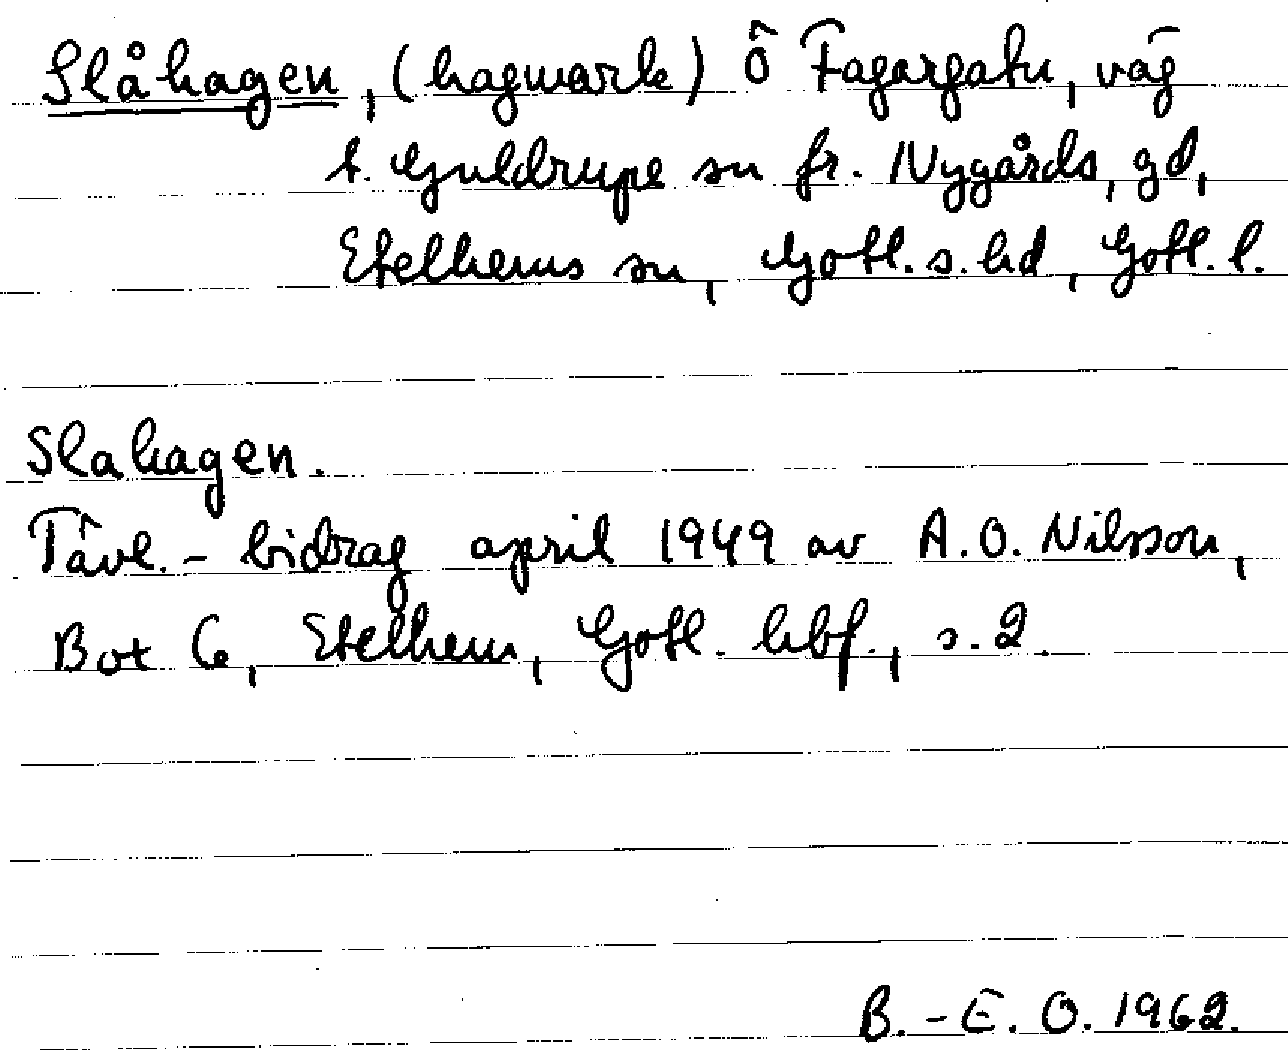 Slåhagen, (hagmark) ö Fagargatu, väg
t. Guldrupe sn fr. Nygårds, gd,
Etelhems sn, Gotl. s. hd, Gotl. l.
Slahagen.
Tävl.- bidrag april 1949 av A. O. Nilsson,
Box 6, Etelhem, Gotl. hbf., s. 2
B.-E. O. 1962.